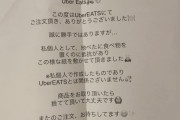 Uber Eats
この度はUberEATSにて
ご注文頂き、ありがとうございました
誠に勝手ではありますが…
私個人として、食べたに食べ物を
置くのに
この様な紙を敷かせて頂きました
私個人で作成したものであり
UberEATSとは関係ございません
商品をお取り頂いたら
捨てて頂いて大丈夫です
またのご注文、お待ちしてます